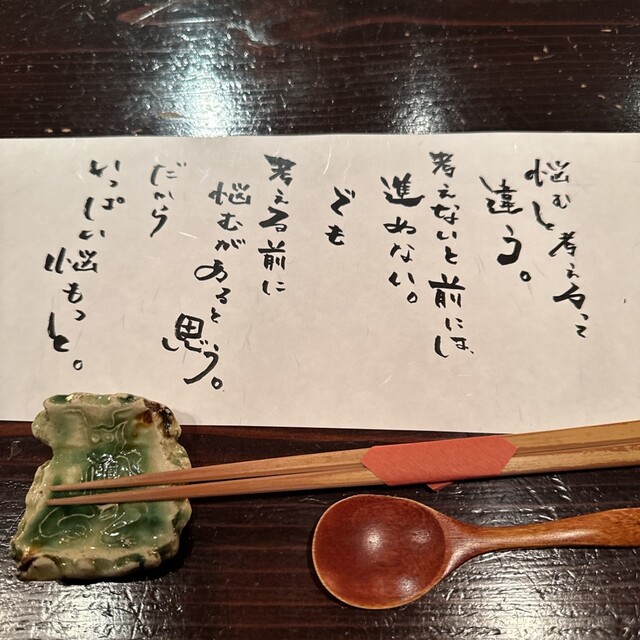 悩むと考えるって
違う。
考えないと前には
進めない。
でも
考える前に
悩むがあると
思う。
だから
いっぱい悩もっと。